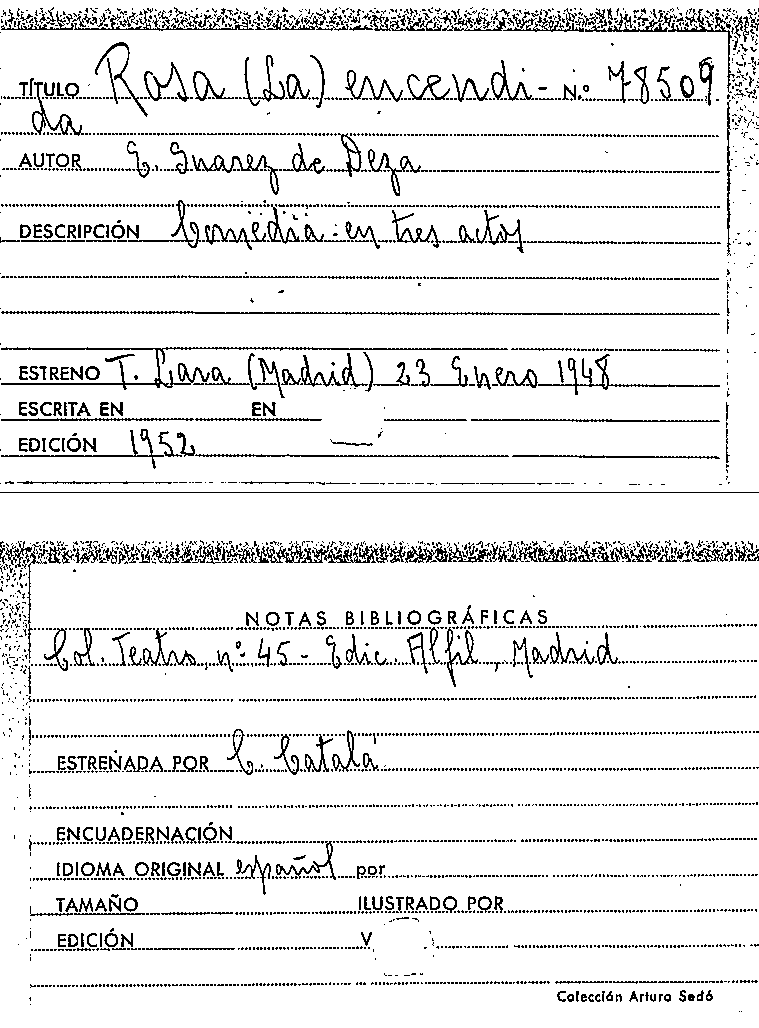 TÍTULO Rosa (La) encendi- N.º 78509
da
AUTOR E. Suarez de Deza
DESCRIPCIÓN Comedia en tres actos
ESTRENO T. Lara (Madrid) 23 Enero 1948
ESCRITA EN EN
EDICIÓN 1952
NOTAS BIBLIOGRÁFICAS
Col. Teatro, nº 45 - Edic. Alfil, Madrid
ESTRENADA POR C. Catalá
ENCUADERNACIÓN
IDIOMA ORIGINAL español por
TAMAÑO ILUSTRADO POR
EDICIÓN V
Colección Arturo Sedó